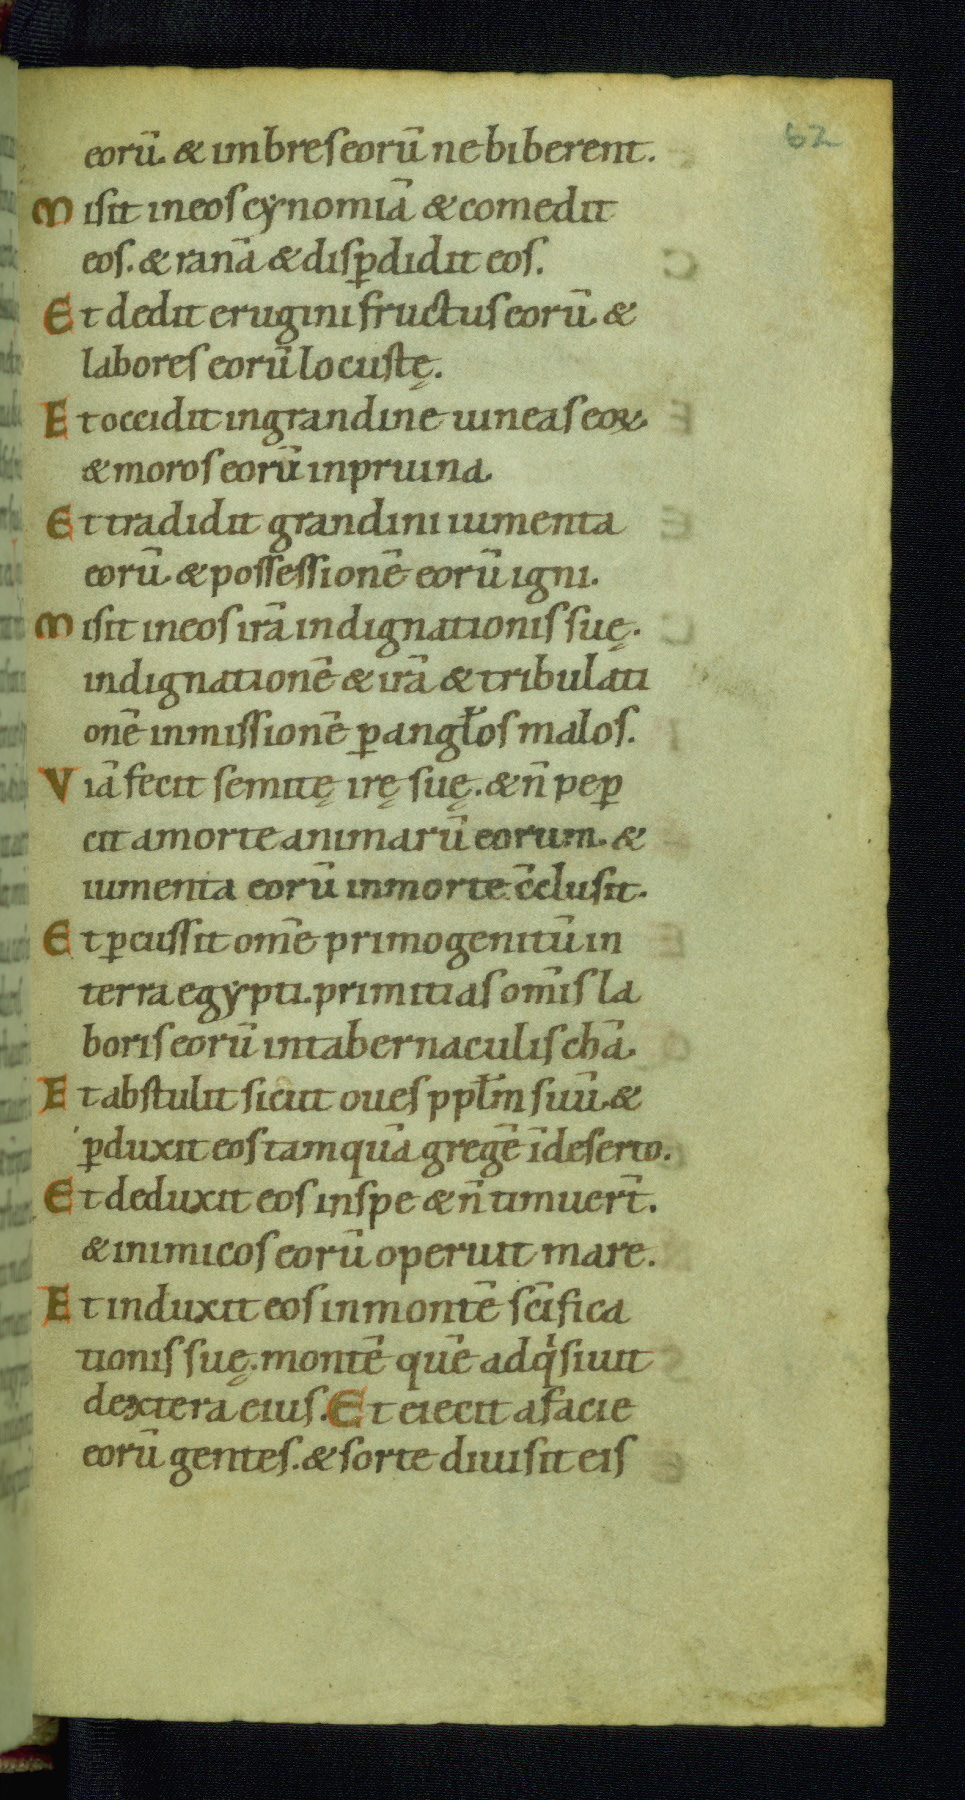 62
eorū. & imbres eorū ne biberent.
Misit in eos cynomiā & comedit
eos. & ranā & disꝑdidit eos.
Et dedit erugini fructus eorū &
labores eorū locustę.
Et occidit in grandine uineas eoꝝ.
& moros eorū in pruina.
Et tradidit grandini iumenta
eorū. & possessionē eorū igni.
Misit in eos irā indignationis suę.
indignationē & irā & tribulati
onē inmissionē ꝑ angłos malos.
Viā fecit semitę irę suę. & n̄ peꝑ
cit a morte animarū eorum. &
iumenta eorū in morte c̄clusit.
Et ꝑcussit om̄e primogenitū in
terra egypti. primitias om̄is la
boris eorū in tabernaculis chā.
Et abstulit sicut oues ppłm suū. &
ꝑduxit eos tamquā gregē ī deserto.
Et deduxit eos in spe & n̄ timuer̄t.
& inimicos eorū operuit mare.
Et induxit eos in montē sc̄ifica
tionis suę. montē quē adqͥsiuit
dextera eius. Et eiecit a facie
eorū gentes. & sorte diuisit eis